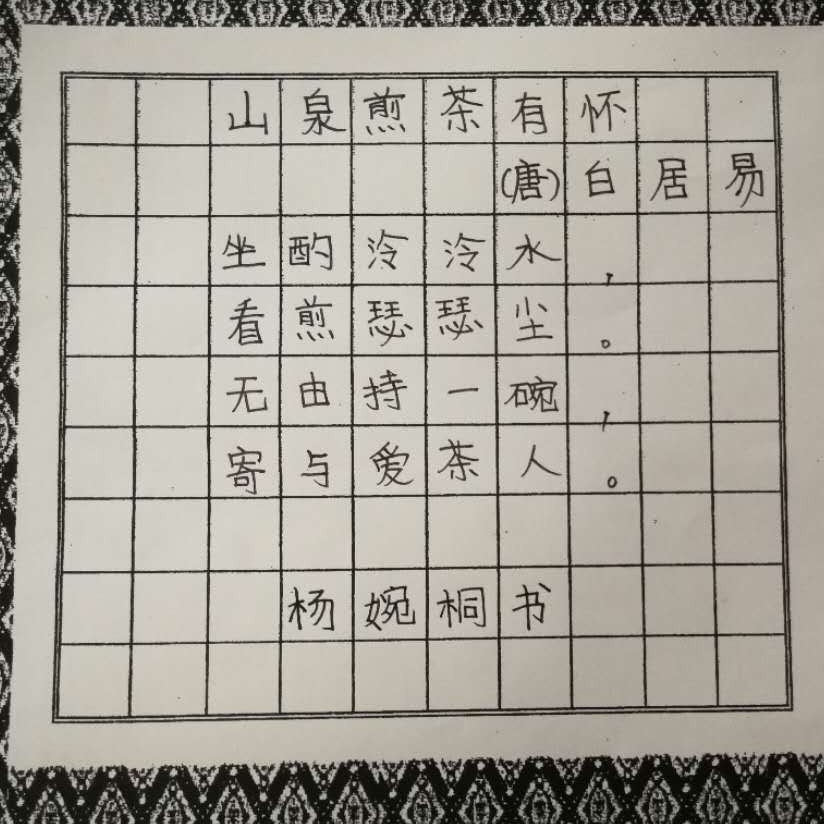 山泉煎茶有怀
(唐)白居易
坐酌泠泠水，
看煎瑟瑟尘。
无由持一碗，
寄与爱茶人。
杨婉桐书